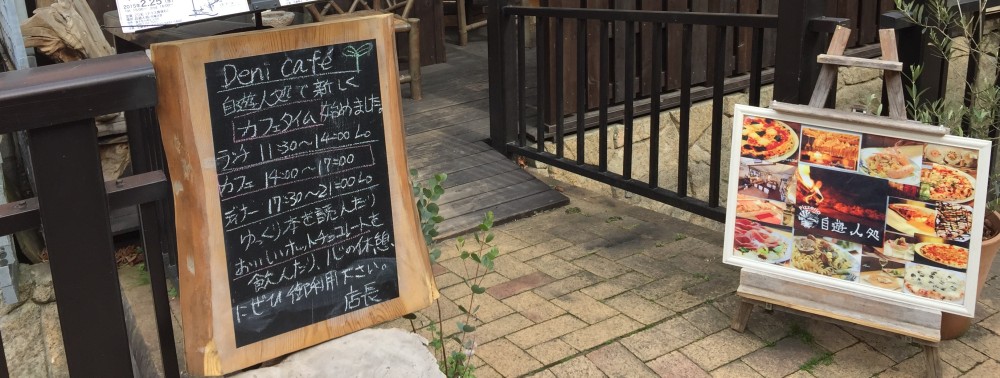 2.25
Deni Café
自遊人処で新しく
カフェタイム始めました
ランチ 11:30〜14:00 Lo
カフェ 14:00〜17:00
ディナー 17:30〜21:00 Lo
ゆっくり本を読んだり
おいしいホットチョコレートを
飲んだり、心の休憩
にぜひ御利用下さい。
店長
自遊人処